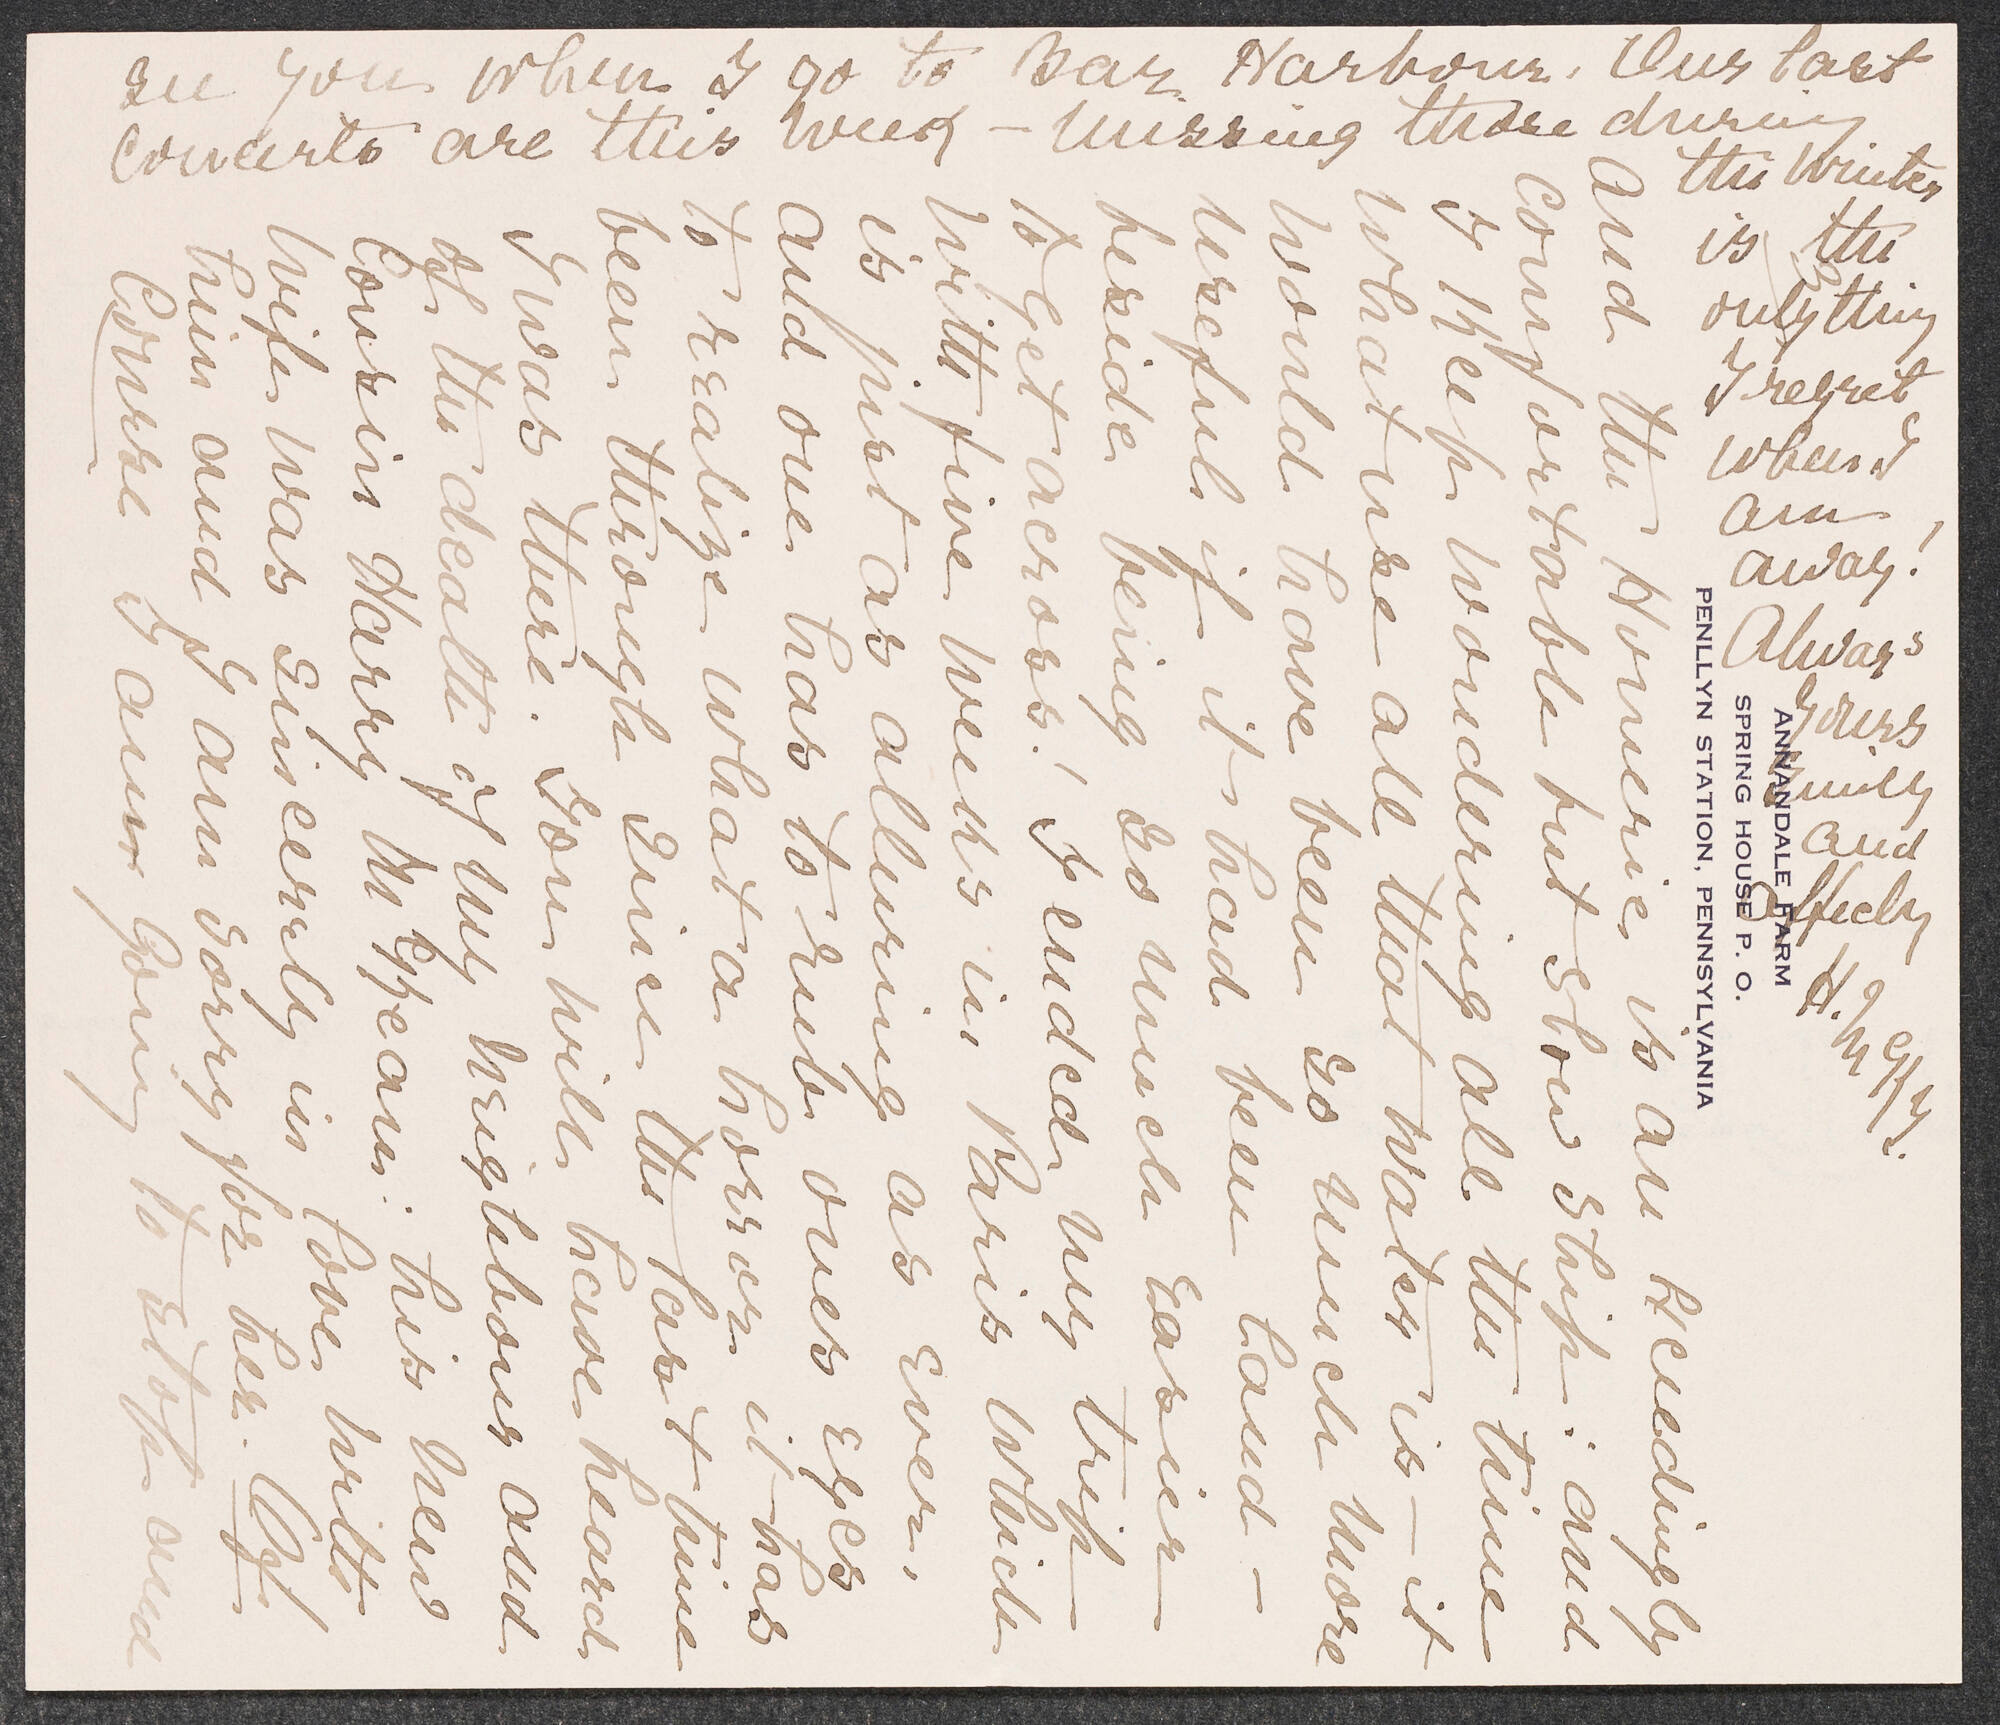 ANNANDALE FARM
SPRING HOUSE P. O.
PENLLYN STATION, PENNSYLVANIA
and the Homeric is an exceedingly
comfortable but slow ship: and
I keep wondering all the time
what use all that water is – it
would have been so much more
useful if it had been land –
beside being so much easier
to get across! I ended my trip
with five weeks in Paris which
is just as alluring as ever,
and one has to rub ones eyes
to realize what a horror it has
been through since the last time
I was there. You will have heard
of the death of my neighbour and
Cousin Harry his new
wife was sincerely in love with
him and I am sorry for her. Of
Course I am going to stop and
see you when I go to Bar Harbour. Our last
Concerts are this week – missing those during
the winter
is the
only thing
I regret
when I
am
away!
Always
yours
and